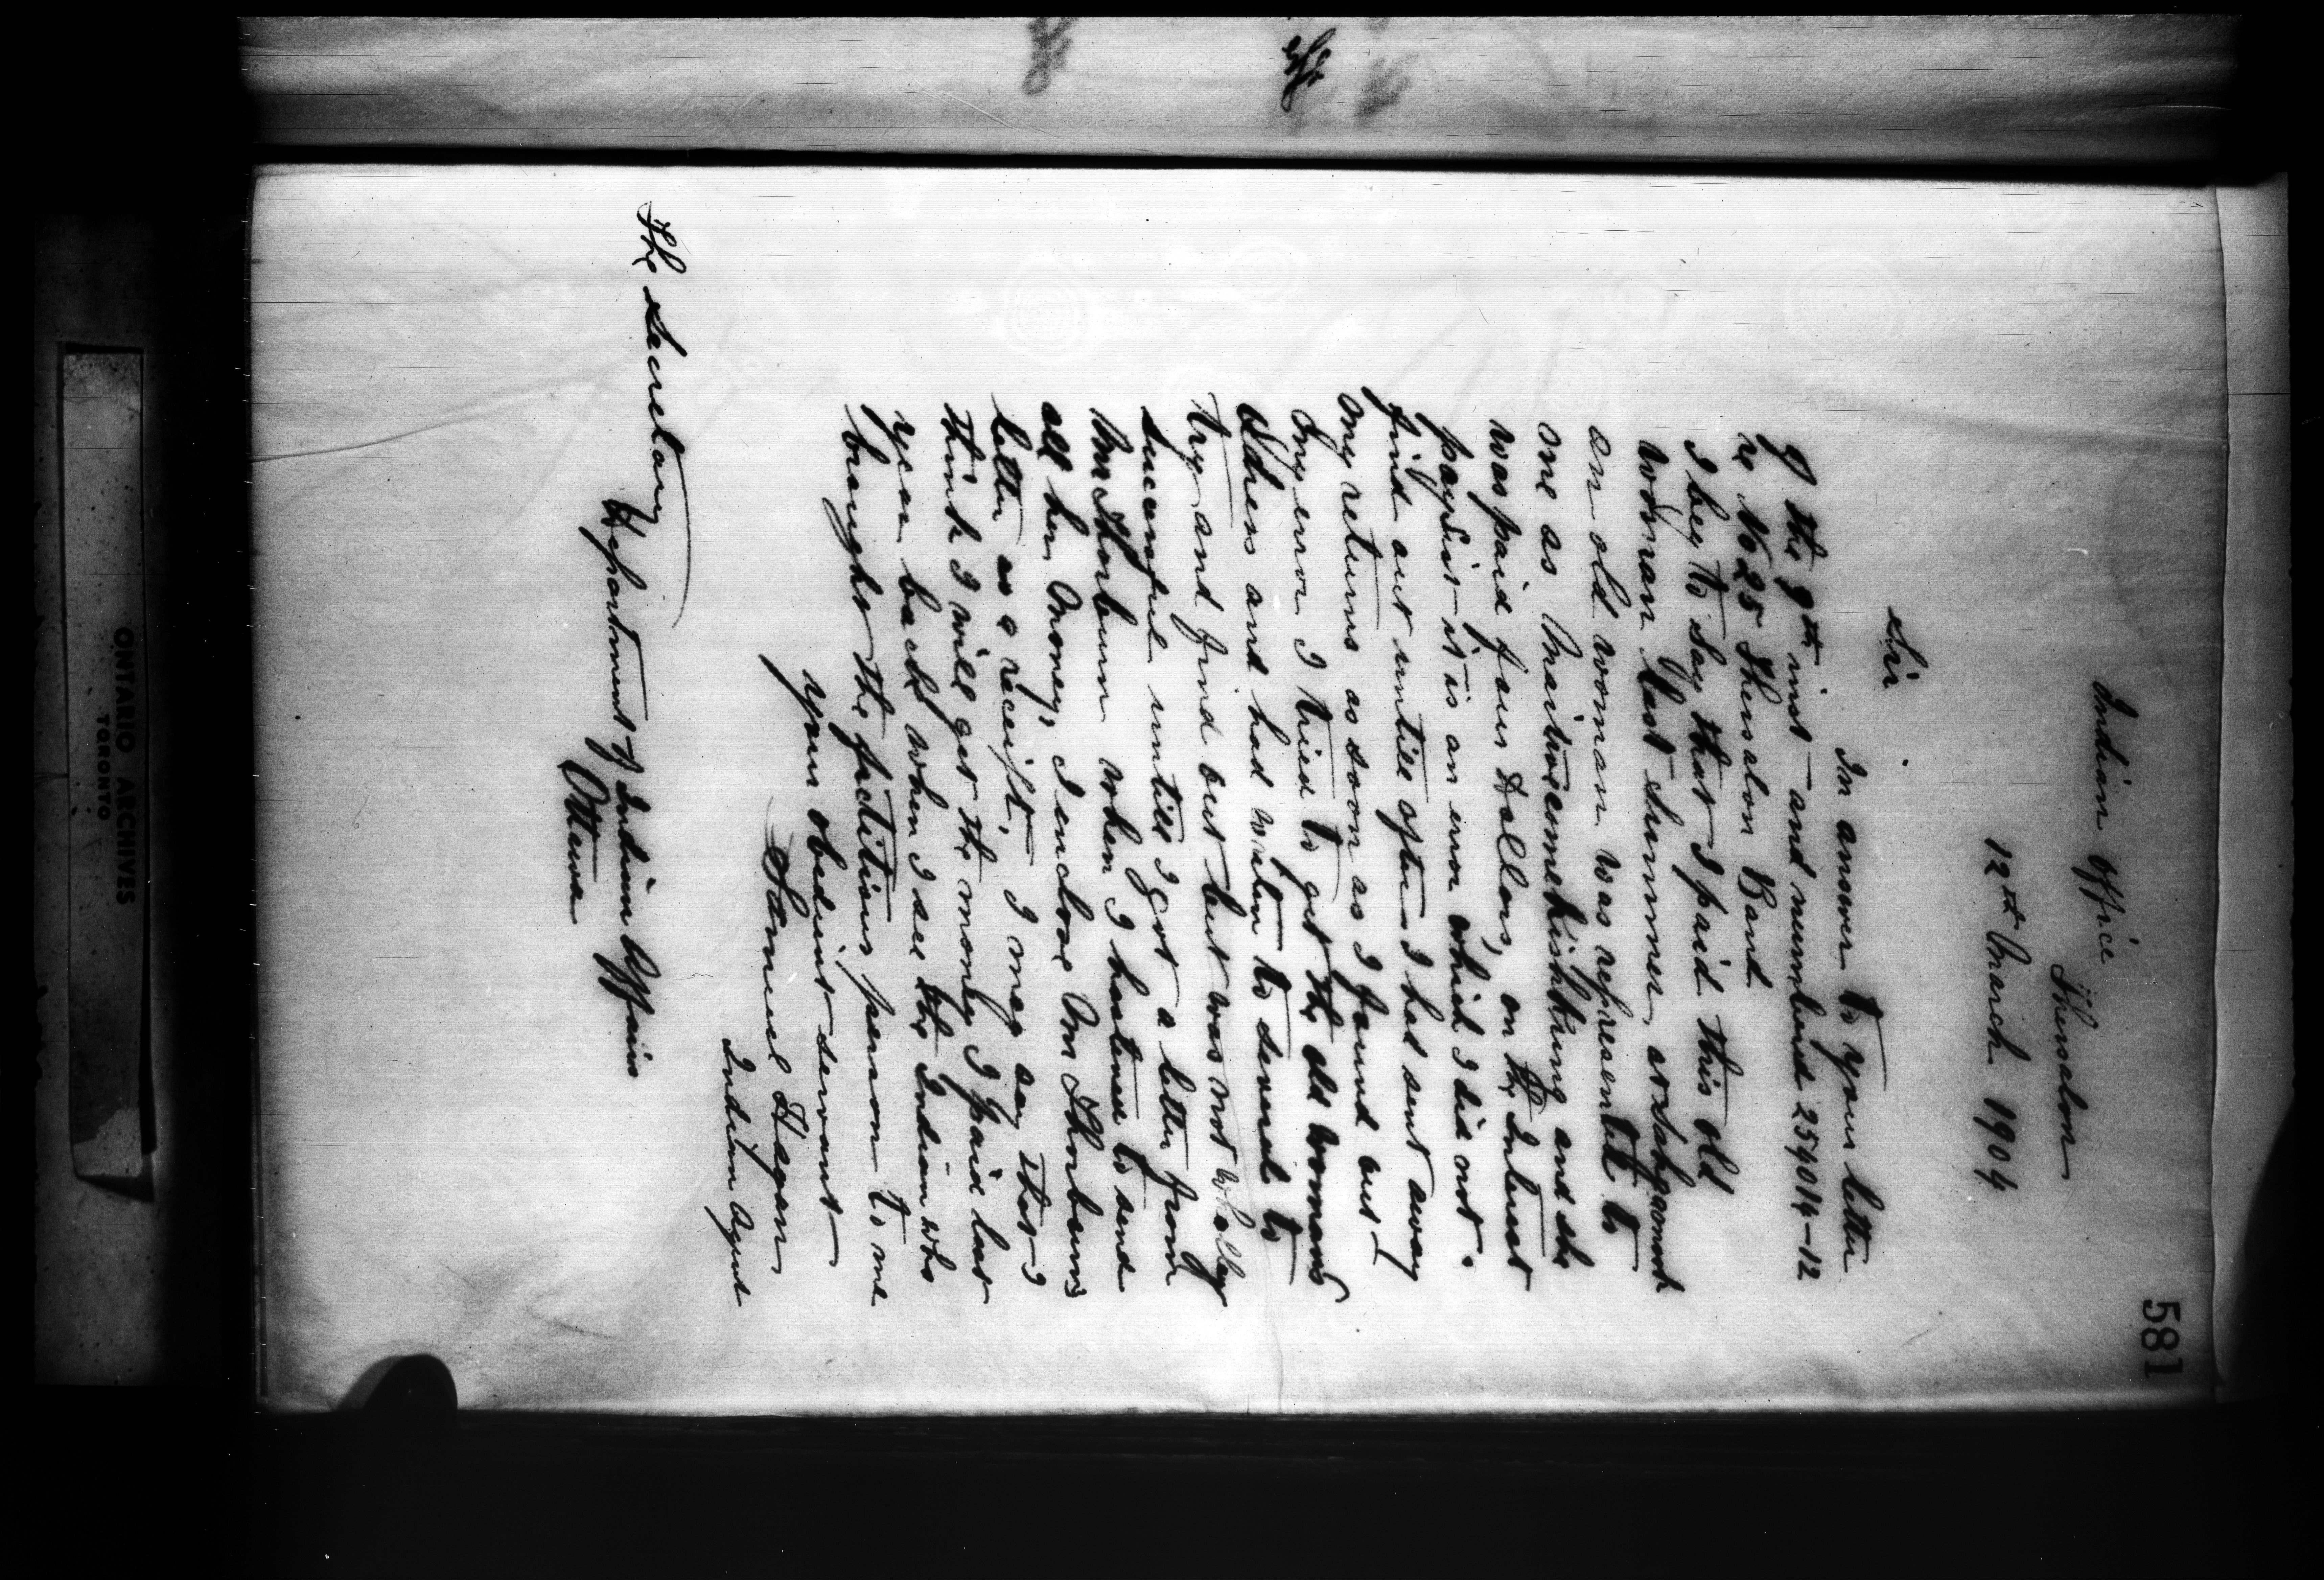 581
Indian Office
Thessalon
12th March 1904
Sir
In answer to your letter
of the 9th inst and numbered 254014-12
re No 25 Thessalon Band
I beg to say that I paid this old
woman last summer at
an old woman was represented to
one as and she
was paid four Dollars, on the Interest
paylist it is an error which I did not
find out untill after I had sent away
my returns as soon as I found out
my error I tried to get the old womans
and had writen to several to
try and find out but was not wholley
successful untill I got a letter from
Mr Thorburn when I hastened to send
all her money, I enclose Mr Thorburn's
letter as a receipt, I may say that I
think I will get the money I paid last
year back when I see the Indian who
brought the fictitious person to me
your obedient servant
Samuel Hagan
Indian Agent
The Secretary
Department of Indian Affairs
Ottawa
ONTARIO ARCHIVES
TORONTO